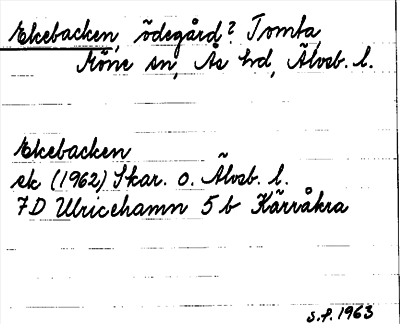 Ekebacken, ödegård? Tomta,
Möne sn, Ås hd, Älvsb. l.
Ekebacken
ek (1962) Skar. o. Älvsb. l.
7D Ulricehamn 5 b Kärråkra
S.F. 1963